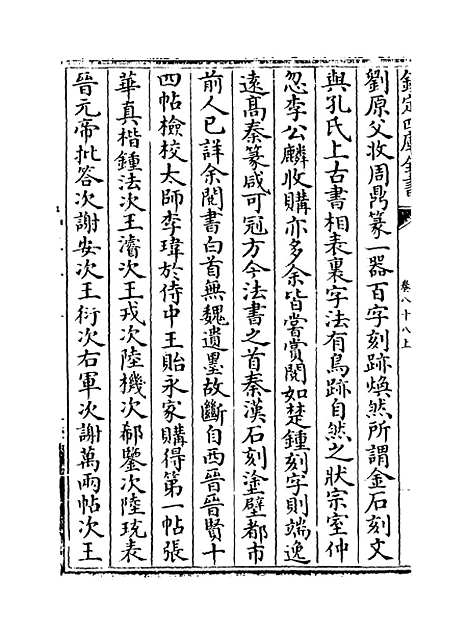 欽定四庫全書
卷八十八上
劉原父收周鼎篆一器百字刻跡煥然所謂金石刻文
與孔氏上古書相表裏字法有鳥跡自然之狀宗室仲
忽李公麟收購亦多余皆嘗賞閱如楚鍾刻字則端逸
遠髙秦篆咸可冠方今法書之首秦漢石刻塗壁都市
前人已詳余閱書白首無魏遺墨故斷自西晉晉賢十
四帖檢校太師李瑋於侍中王貽永家購得第一帖張
華真楷鍾法次王濬次王戎次陸機次郗鑒次陸玩表
晉元帝批答次謝安次王衍次右軍次謝萬兩帖次王